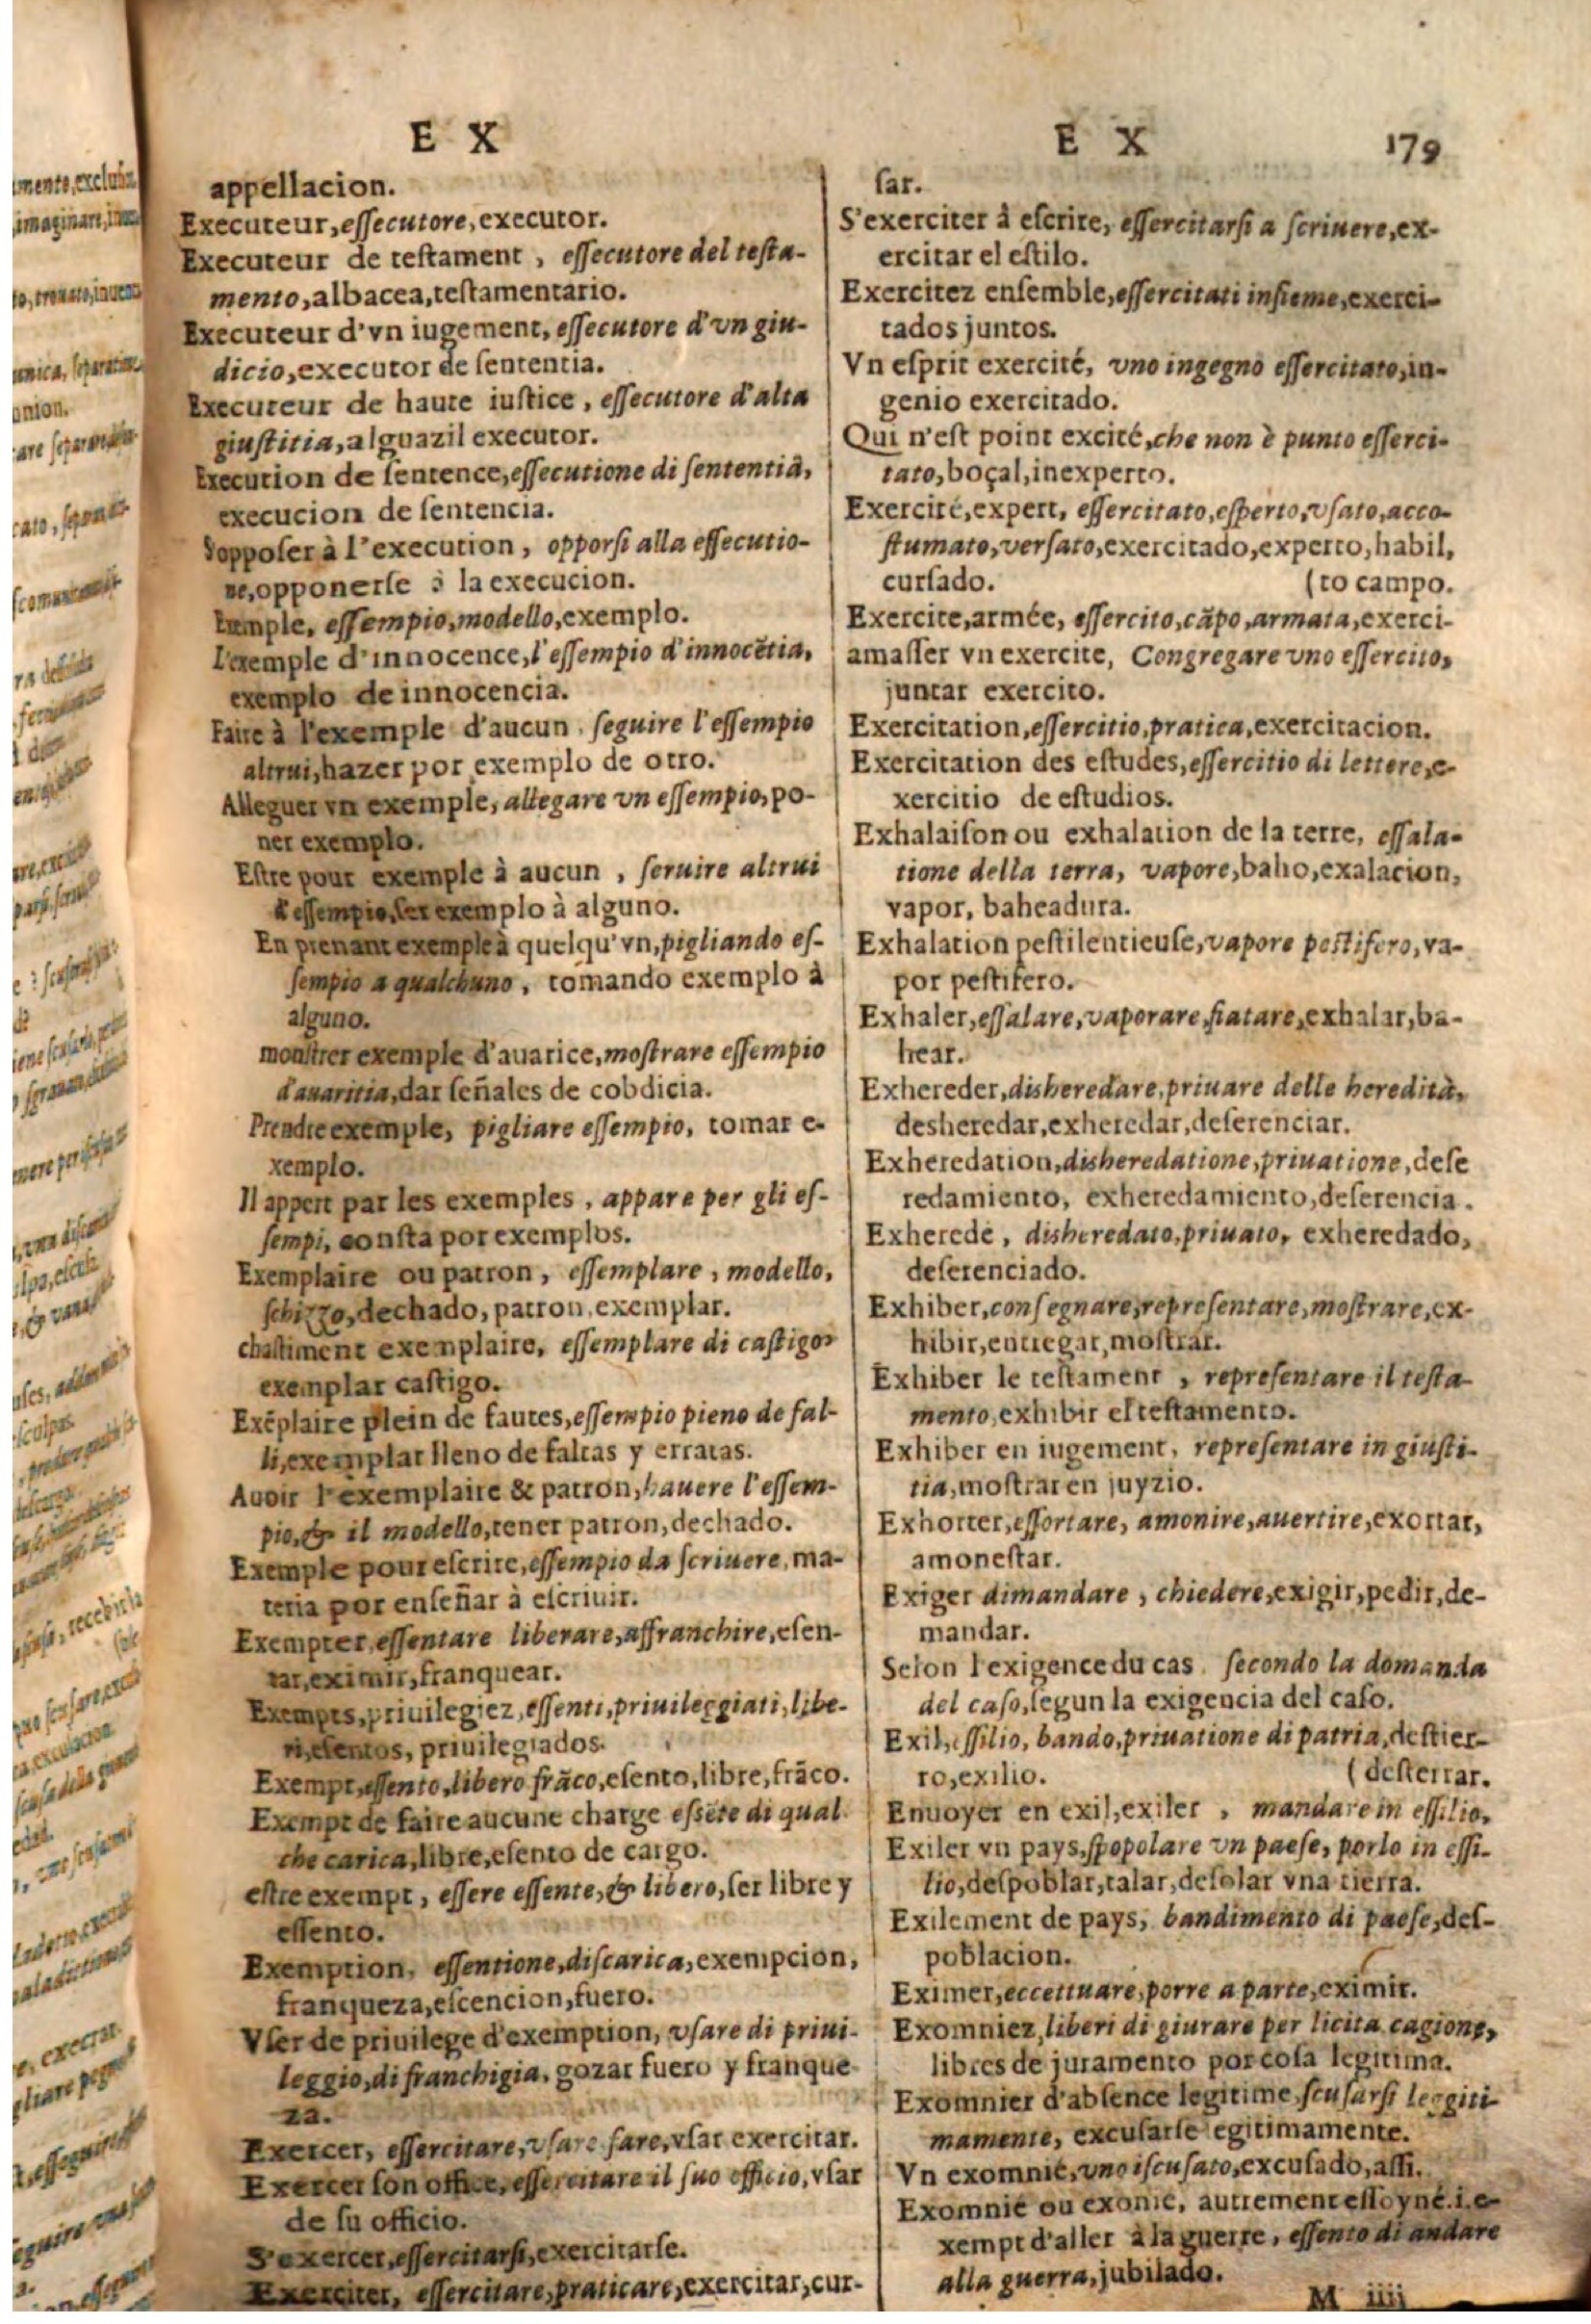 E X
appellacion.
Executeur, eſſecutore, executor.
Executeur de teſtament, eſſecutore del teſta-
mento, albacea, teſtamentario.
Executeur d'vn iugement, eſſecutore d'vn giu-
dicio, executor de ſententia.
Executeur de haute iuſtice, eſſecutore d'alta
giuſtitia, alguazil executor.
Execution de ſentence, eſſecutione di ſententia,
execucion de ſentencia.
S'oppoſer à l'execution, opporſi alla eſſecutio-
ne, opponerſe à la execucion.
Exemple, eſſempio, modello, exemplo.
L'exemple d'innocence, l'eſſempio d'innocētia,
exemplo de innocencia.
Faire à l'exemple d'aucun, ſeguire l'eſſempio
altrui, hazer por exemplo de otro.
Alleguer vn exemple, allegare vn eſſempio, po-
ner exemplo.
Eſtre pour exemple à aucun, ſeruire altrui
d'eſſempio, ſer exemplo à alguno.
En prenant exemple à quelqu'vn, pigliando eſ-
ſempio a qualchuno, tomando exemplo à
alguno.
monſtrer exemple d'auarice, moſtrare eſſempio
d'auaritia, dar ſeñales de cobdicia.
Prendre exemple, pigliare eſſempio, tomar e-
xemplo.
Il appert par les exemples, appare per gli eſ-
ſempi, conſta por exemplos.
Exemplaire ou patron, eſſemplare, modello,
ſchizzo, dechado, patron, exemplar.
chaſtiment exemplaire, eſſemplare di caſtigo,
exemplar caſtigo.
Exēplaire plein de fautes, eſſempio pieno de fal-
li, exemplar lleno de faltas y erratas.
Auoir l'exemplaire & patron, hauere l'eſſem-
pio, & il modello, tener patron, dechado.
Exemple pour eſcrire, eſſempio da ſcriuere, ma-
teria por enſeñar à eſcriuir.
Exempter, eſſentare liberare, affranchire, eſen-
tar, eximir, franquear.
Exempts, priuilegiez, eſſenti, priuileggiati, libe-
ri, eſentos, priuilegiados.
Exempt, eſſento, libero frāco, eſento, libre, frāco.
Exempt de faire aucune charge eſsēte di qual
che carica, libre, eſento de cargo.
eſtre exempt, eſſere eſſente, & libero, ſer libre y
eſſento.
Exemption, eſſentione, diſcarica, exempcion,
franqueza, eſcencion, fuero.
Vſer de priuilege d'exemption, vſare di priui-
leggio, di franchigia, gozar fuero y franque
za.
Exercer, eſſercitare, vſare fare, vſar exercitar.
Exercer ſon office, eſſercitare il ſuo officio, vſar
de ſu officio.
S'exercer, eſſercitarſi, exercitarſe.
Exerciter, eſſercitare, praticare, exercitar, cur-
E X 179
ſar.
S'exerciter à eſcrire, eſſercitarſi a ſcriuere, ex-
ercitar el eſtilo.
Exercitez enſemble, eſſercitati inſieme, exerci-
tados juntos.
Vn eſprit exercité, vno ingegno eſſercitato, in-
genio exercitado.
Qui n'eſt point excité, che non è punto eſſerci-
tato, boçal, inexperto.
Exercité, expert, eſſercitato, eſperto, vſato, acco-
ſtumato, verſato, exercitado, experto, habil,
curſado. (to campo.
Exercite, armée, eſſercito, cāpo, armata, exerci-
amaſſer vn exercite, Congregare vno eſſercito,
juntar exercito.
Exercitation, eſſercitio, pratica, exercitacion.
Exercitation des eſtudes, eſſercitio di lettere, e-
xercitio de eſtudios.
Exhalaiſon ou exhalation de la terre, eſſala-
tione della terra, vapore, baho, exalacion,
vapor, baheadura.
Exhalation peſtilentieuſe, vapore peſtifero, va-
por peſtifero.
Exhaler, eſſalare, vaporare, fiatare, exhalar, ba-
hear.
Exhereder, disheredare, priuare delle heredità,
desheredar, exheredar, deſerenciar.
Exheredation, disheredatione, priuatione, deſe
redamiento, exheredamiento, deſerencia.
Exheredé, disheredato, priuato, exheredado,
deſerenciado.
Exhiber, conſegnare, repreſentare, moſtrare, ex-
hibir, entregar, moſtrar.
Exhiber le teſtament, repreſentare il teſta-
mento, exhibir el teſtamento.
Exhiber en iugement, repreſentare in giuſti-
tia, moſtrar en juyzio.
Exhorter, eſſortare, amonire, auertire, exortar,
amoneſtar.
Exiger dimandare, chiedere, exigir, pedir, de-
mandar.
Selon l'exigence du cas, ſecondo la domanda
del caſo, ſegun la exigencia del caſo.
Exil, eſſilio, bando, priuatione di patria, deſtier-
ro, exilio. (deſterrar.
Enuoyer en exil, exiler, mandare in eſſilio,
Exiler vn pays, ſpopolare vn paeſe, porlo in eſſi-
lio, deſpoblar, talar, deſolar vna tierra.
Exilement de pays, bandimento di paeſe, deſ-
poblacion.
Eximer, eccettuare, porre a parte, eximir.
Exomniez, liberi di giurare per licita cagione,
libres de juramento por coſa legitima.
Exomnier d'abſence legitime, ſcuſarſi leggiti-
mamente, excuſarſe egitimamente.
Vn exomnié, vno iſcuſato, excuſado, aſſi.
Exomnié ou exonié, autrement eſſoyné.i.e-
xempt d'aller à la guerre, eſſento di andare
alla guerra, jubilado.
M iiij